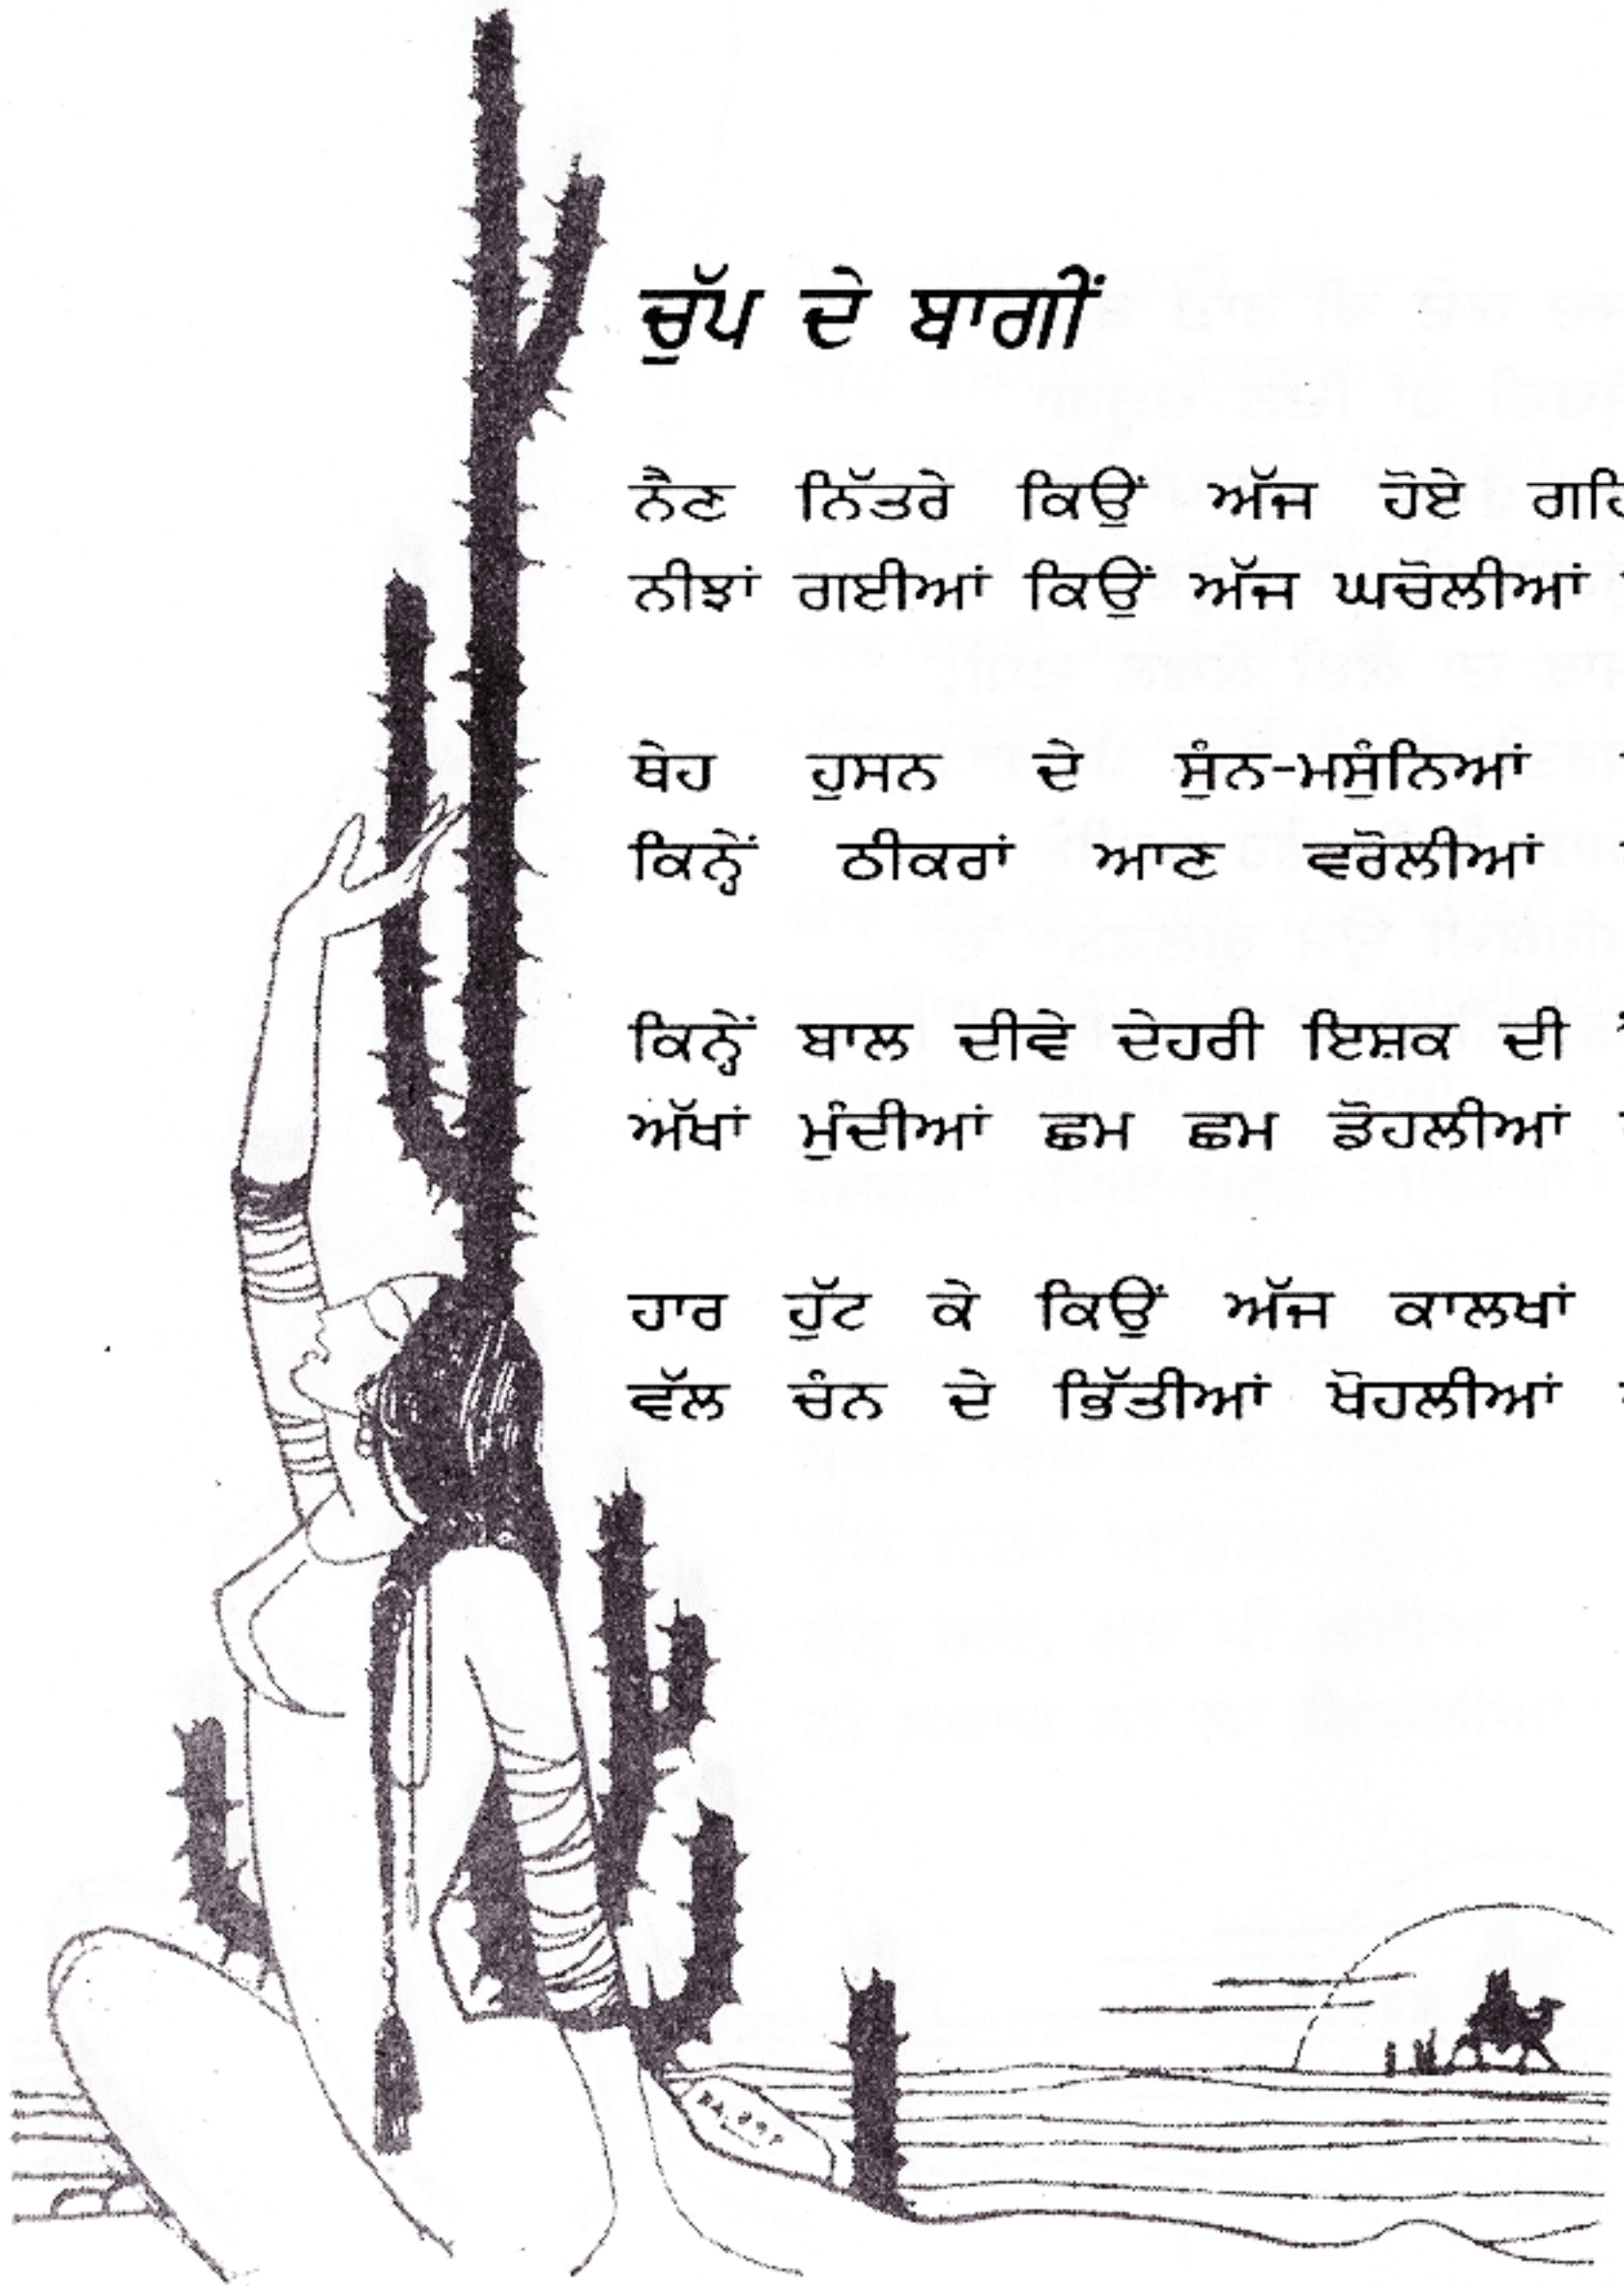 ਚੁੱਪ ਦੇ ਬਾਗੀਂ
ਨੈਣ ਨਿੱਤਰੇ ਕਿਉਂ ਅੱਜ ਹੋਏ
ਨੀਝਾਂ ਗਈਆਂ ਕਿਉਂ ਅੱਜ ਘਚੋਲੀਆਂ
ਥੇਹ ਹੁਸਨ ਦੇ ਸੁੰਨ-ਮਸੁੰਨਿਆਂ
ਕਿਨ੍ਹੇਂ ਠੀਕਰਾਂ ਆਣ ਵਰੋਲੀਆਂ
ਕਿਨ੍ਹੇਂ ਬਾਲ ਦੀਵੇ ਦੇਹਰੀ ਇਸ਼ਕ ਦੀ
ਅੱਖਾਂ ਮੁੰਦੀਆਂ ਛਮ ਛਮ ਡੋਹਲੀਆਂ
ਹਾਰ ਹੁੱਟ ਕੇ ਕਿਉਂ ਅੱਜ ਕਾਲਖਾਂ
ਵੱਲ ਚੰਨ ਦੇ ਭਿੱਤੀਆਂ ਖੋਹਲੀਆਂ